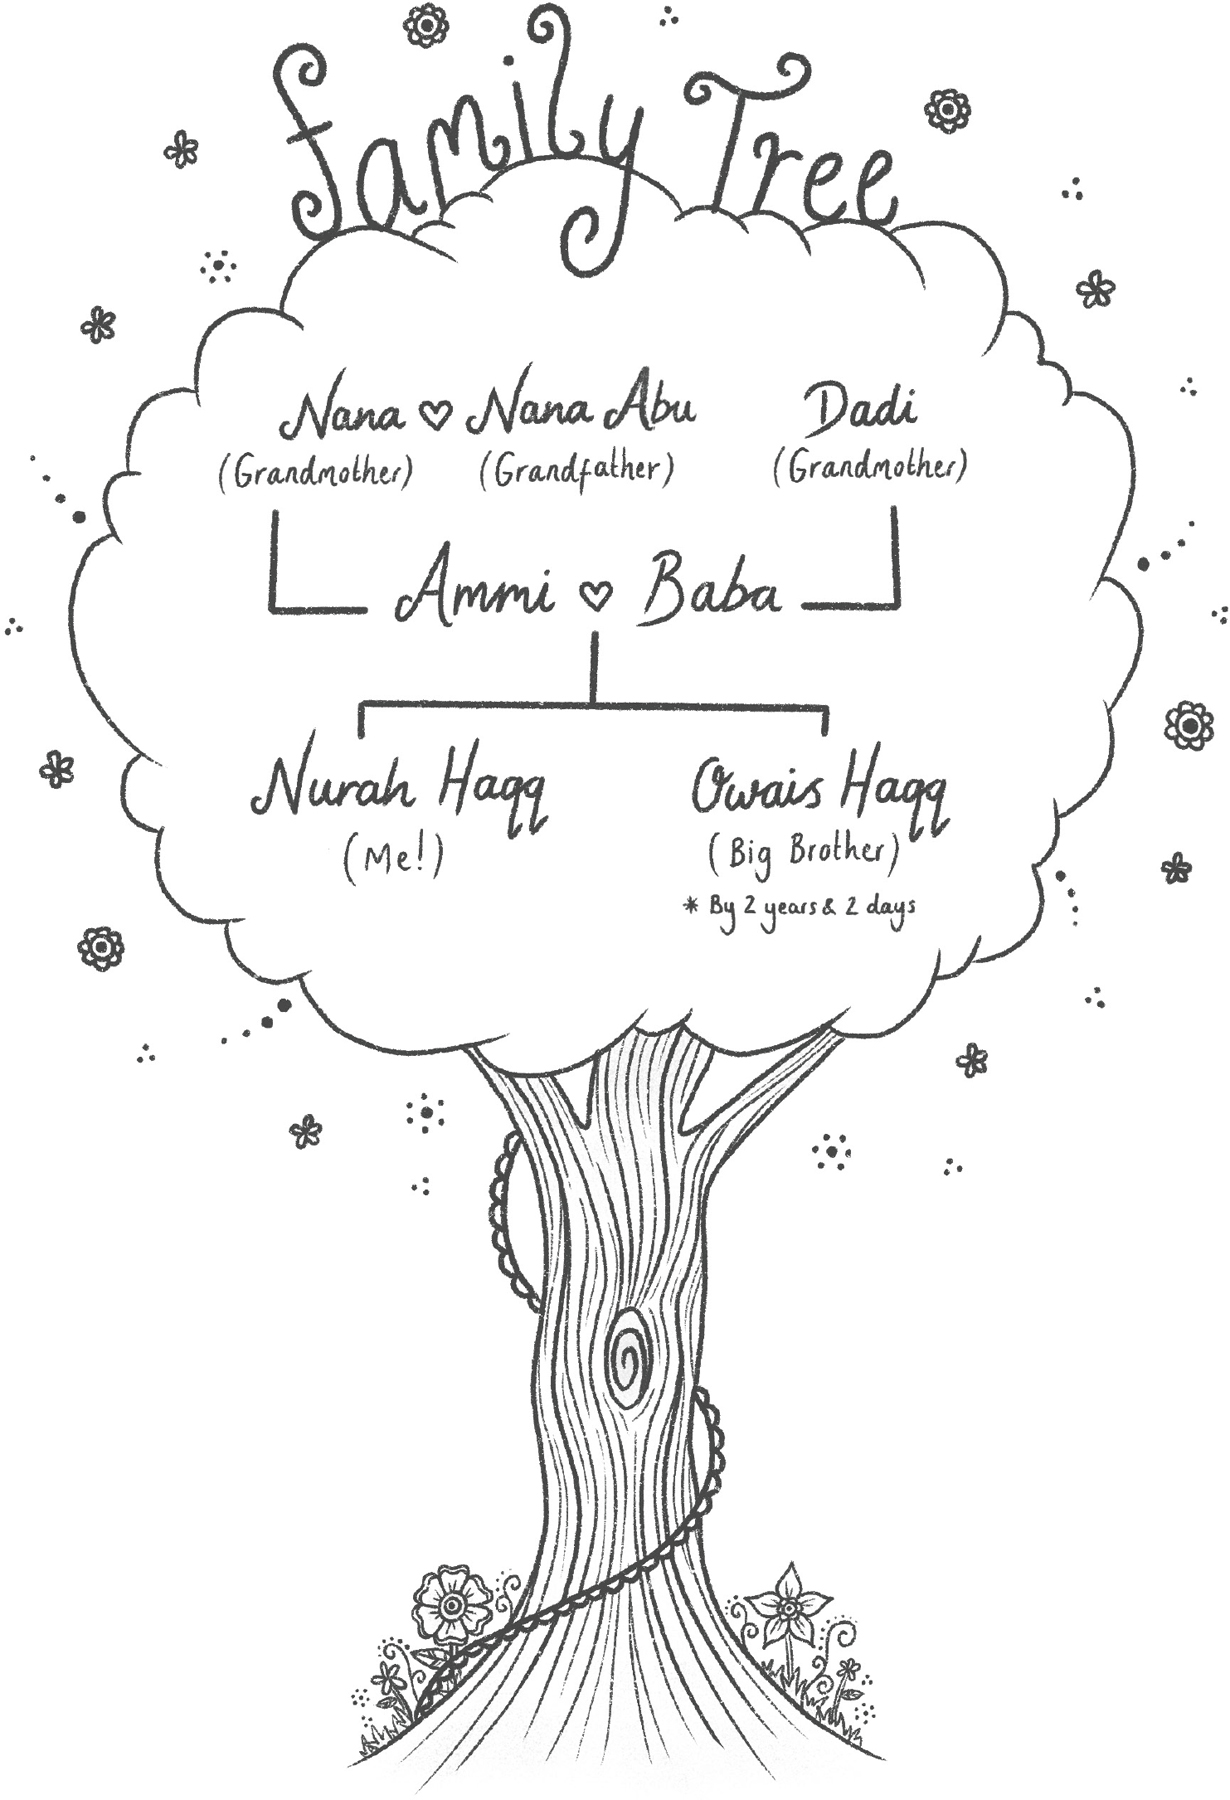 family Tree
Nana ♡ Nana Abu Dadi
(Grandmother) (Grandfather) (Grandmother)
Ammi ♡ Baba
Nurah Haqq Owais Haqq
(Me!) (Big Brother)
* By 2 years & 2 days